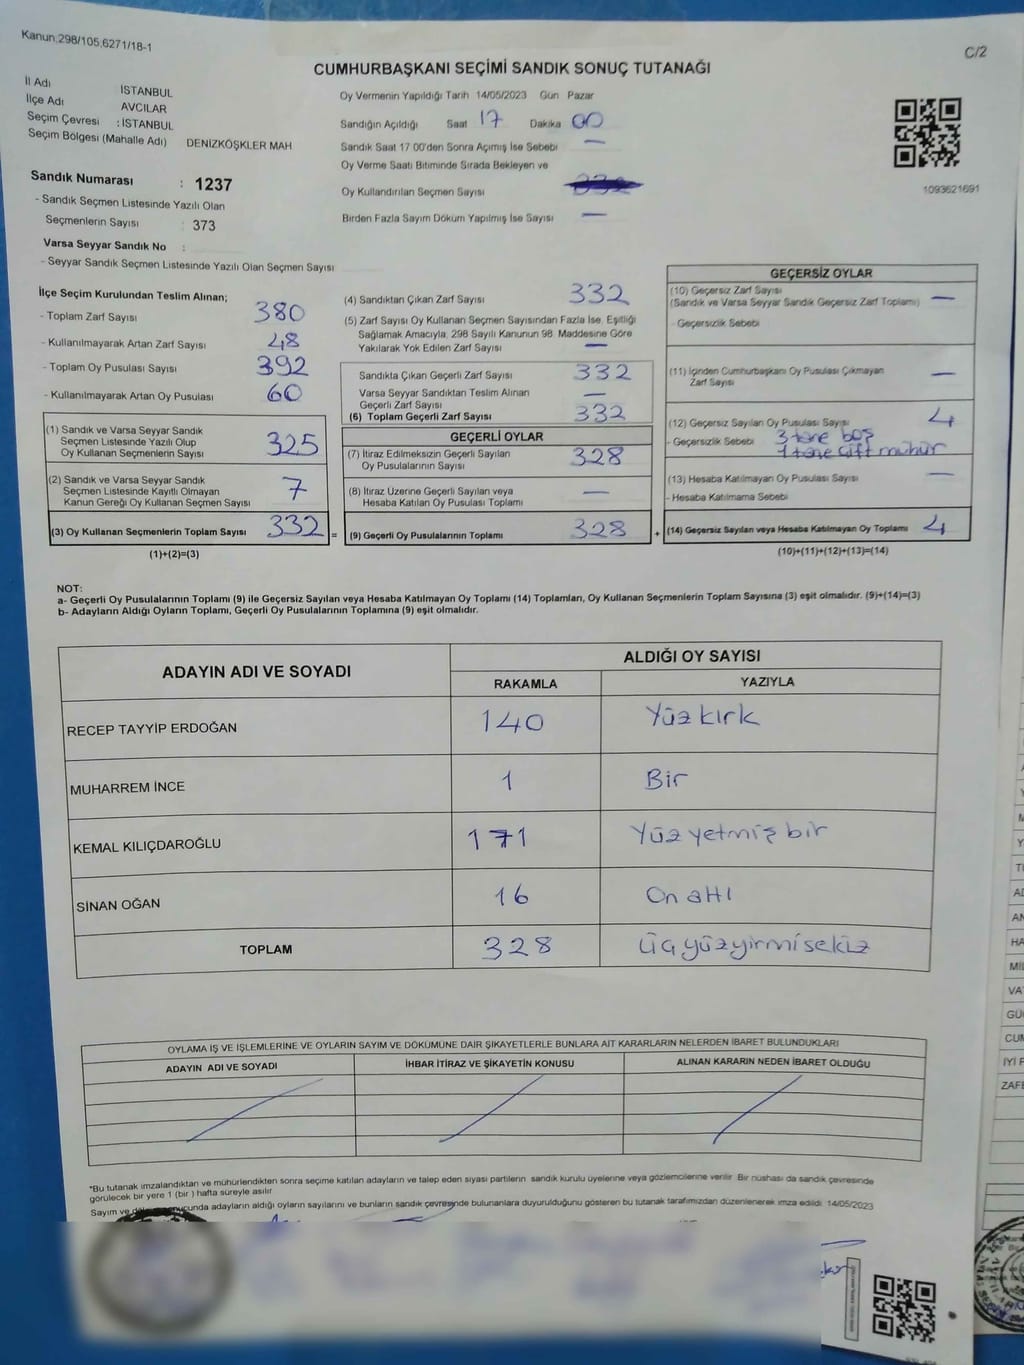 Kanun;298/105,6271/18-1
C/2
CUMHURBAŞKANI SEÇİMİ SANDIK SONUÇ TUTANAĞI
İl Adı İSTANBUL
İlçe Adı AVCILAR
Seçim Çevresi : İSTANBUL
Seçim Bölgesi (Mahalle Adı) DENİZKÖŞKLER MAH
Sandık Numarası : 1237
- Sandık Seçmen Listesinde Yazılı Olan
Seçmenlerin Sayısı : 373
Varsa Seyyar Sandık No :
- Seyyar Sandık Seçmen Listesinde Yazılı Olan Seçmen Sayısı
Oy Vermenin Yapıldığı Tarih 14/05/2023 Gün Pazar
Sandığın Açıldığı Saat 17 Dakika 00
Sandık Saat 17 00'den Sonra Açımış İse Sebebi —
Oy Verme Saati Bitiminde Sırada Bekleyen ve
Oy Kullandırılan Seçmen Sayısı
Birden Fazla Sayım Döküm Yapılmış İse Sayısı —
1093621691
İlçe Seçim Kurulundan Teslim Alınan;
- Toplam Zarf Sayısı 380
- Kullanılmayarak Artan Zarf Sayısı 48
- Toplam Oy Pusulası Sayısı 392
- Kullanılmayarak Artan Oy Pusulası 60
(1) Sandık ve Varsa Seyyar Sandık
Seçmen Listesinde Yazılı Olup
Oy Kullanan Seçmenlerin Sayısı 325
(2) Sandık ve Varsa Seyyar Sandık
Seçmen Listesinde Kayıtlı Olmayan
Kanun Gereği Oy Kullanan Seçmen Sayısı 7
(3) Oy Kullanan Seçmenlerin Toplam Sayısı 332 =
(1)+(2)=(3)
(4) Sandıktan Çıkan Zarf Sayısı 332
(5) Zarf Sayısı Oy Kullanan Seçmen Sayısından Fazla İse, Eşitliği
Sağlamak Amacıyla, 298 Sayılı Kanunun 98. Maddesine Göre
Yakılarak Yok Edilen Zarf Sayısı —
Sandıkta Çıkan Geçerli Zarf Sayısı 332
Varsa Seyyar Sandıktan Teslim Alınan
Geçerli Zarf Sayısı —
(6) Toplam Geçerli Zarf Sayısı 332
GEÇERLİ OYLAR
(7) İtiraz Edilmeksizin Geçerli Sayılan
Oy Pusulalarının Sayısı 328
(8) İtiraz Üzerine Geçerli Sayılan veya
Hesaba Katılan Oy Pusulası Toplamı —
(9) Geçerli Oy Pusulalarının Toplamı 328 +
GEÇERSİZ OYLAR
(10) Geçersiz Zarf Sayısı
(Sandık ve Varsa Seyyar Sandık Geçersiz Zarf Toplamı) —
- Geçersizlik Sebebi
(11) İçinden Cumhurbaşkanı Oy Pusulası Çıkmayan
Zarf Sayısı —
(12) Geçersiz Sayılan Oy Pusulası Sayısı 4
- Geçersizlik Sebebi 3 tane boş
1 tane çift mühür
(13) Hesaba Katılmayan Oy Pusulası Sayısı —
- Hesaba Katılmama Sebebi
(14) Geçersiz Sayılan veya Hesaba Katılmayan Oy Toplamı 4
(10)+(11)+(12)+(13)=(14)
NOT:
a- Geçerli Oy Pusulalarının Toplamı (9) ile Geçersiz Sayılan veya Hesaba Katılmayan Oy Toplamı (14) Toplamları, Oy Kullanan Seçmenlerin Toplam Sayısına (3) eşit olmalıdır. (9)+(14)=(3)
b- Adayların Aldığı Oyların Toplamı, Geçerli Oy Pusulalarının Toplamına (9) eşit olmalıdır.
ADAYIN ADI VE SOYADI ALDIĞI OY SAYISI
RAKAMLA YAZIYLA
RECEP TAYYİP ERDOĞAN 140 Yüz kırk
MUHARREM İNCE 1 Bir
KEMAL KILIÇDAROĞLU 171 Yüz yetmiş bir
SİNAN OĞAN 16 On altı
TOPLAM 328 üçyüzyirmisekiz
OYLAMA İŞ VE İŞLEMLERİNE VE OYLARIN SAYIM VE DÖKÜMÜNE DAİR ŞİKAYETLERLE BUNLARA AİT KARARLARIN NELERDEN İBARET BULUNDUKLARI
ADAYIN ADI VE SOYADI İHBAR İTİRAZ VE ŞİKAYETİN KONUSU ALINAN KARARIN NEDEN İBARET OLDUĞU
*Bu tutanak imzalandıktan ve mühürlendikten sonra seçime katılan adayların ve talep eden siyasi partilerin sandık kurulu üyelerine veya gözlemcilerine verilir. Bir nüshası da sandık çevresinde
görülecek bir yere 1 (bir ) hafta süreyle asılır
Sayım ve sonucunda adayların aldığı oyların sayılarını ve bunların sandık çevresinde bulunanlara duyurulduğunu gösteren bu tutanak tarafımızdan düzenlenerek imza edildi. 14/05/2023